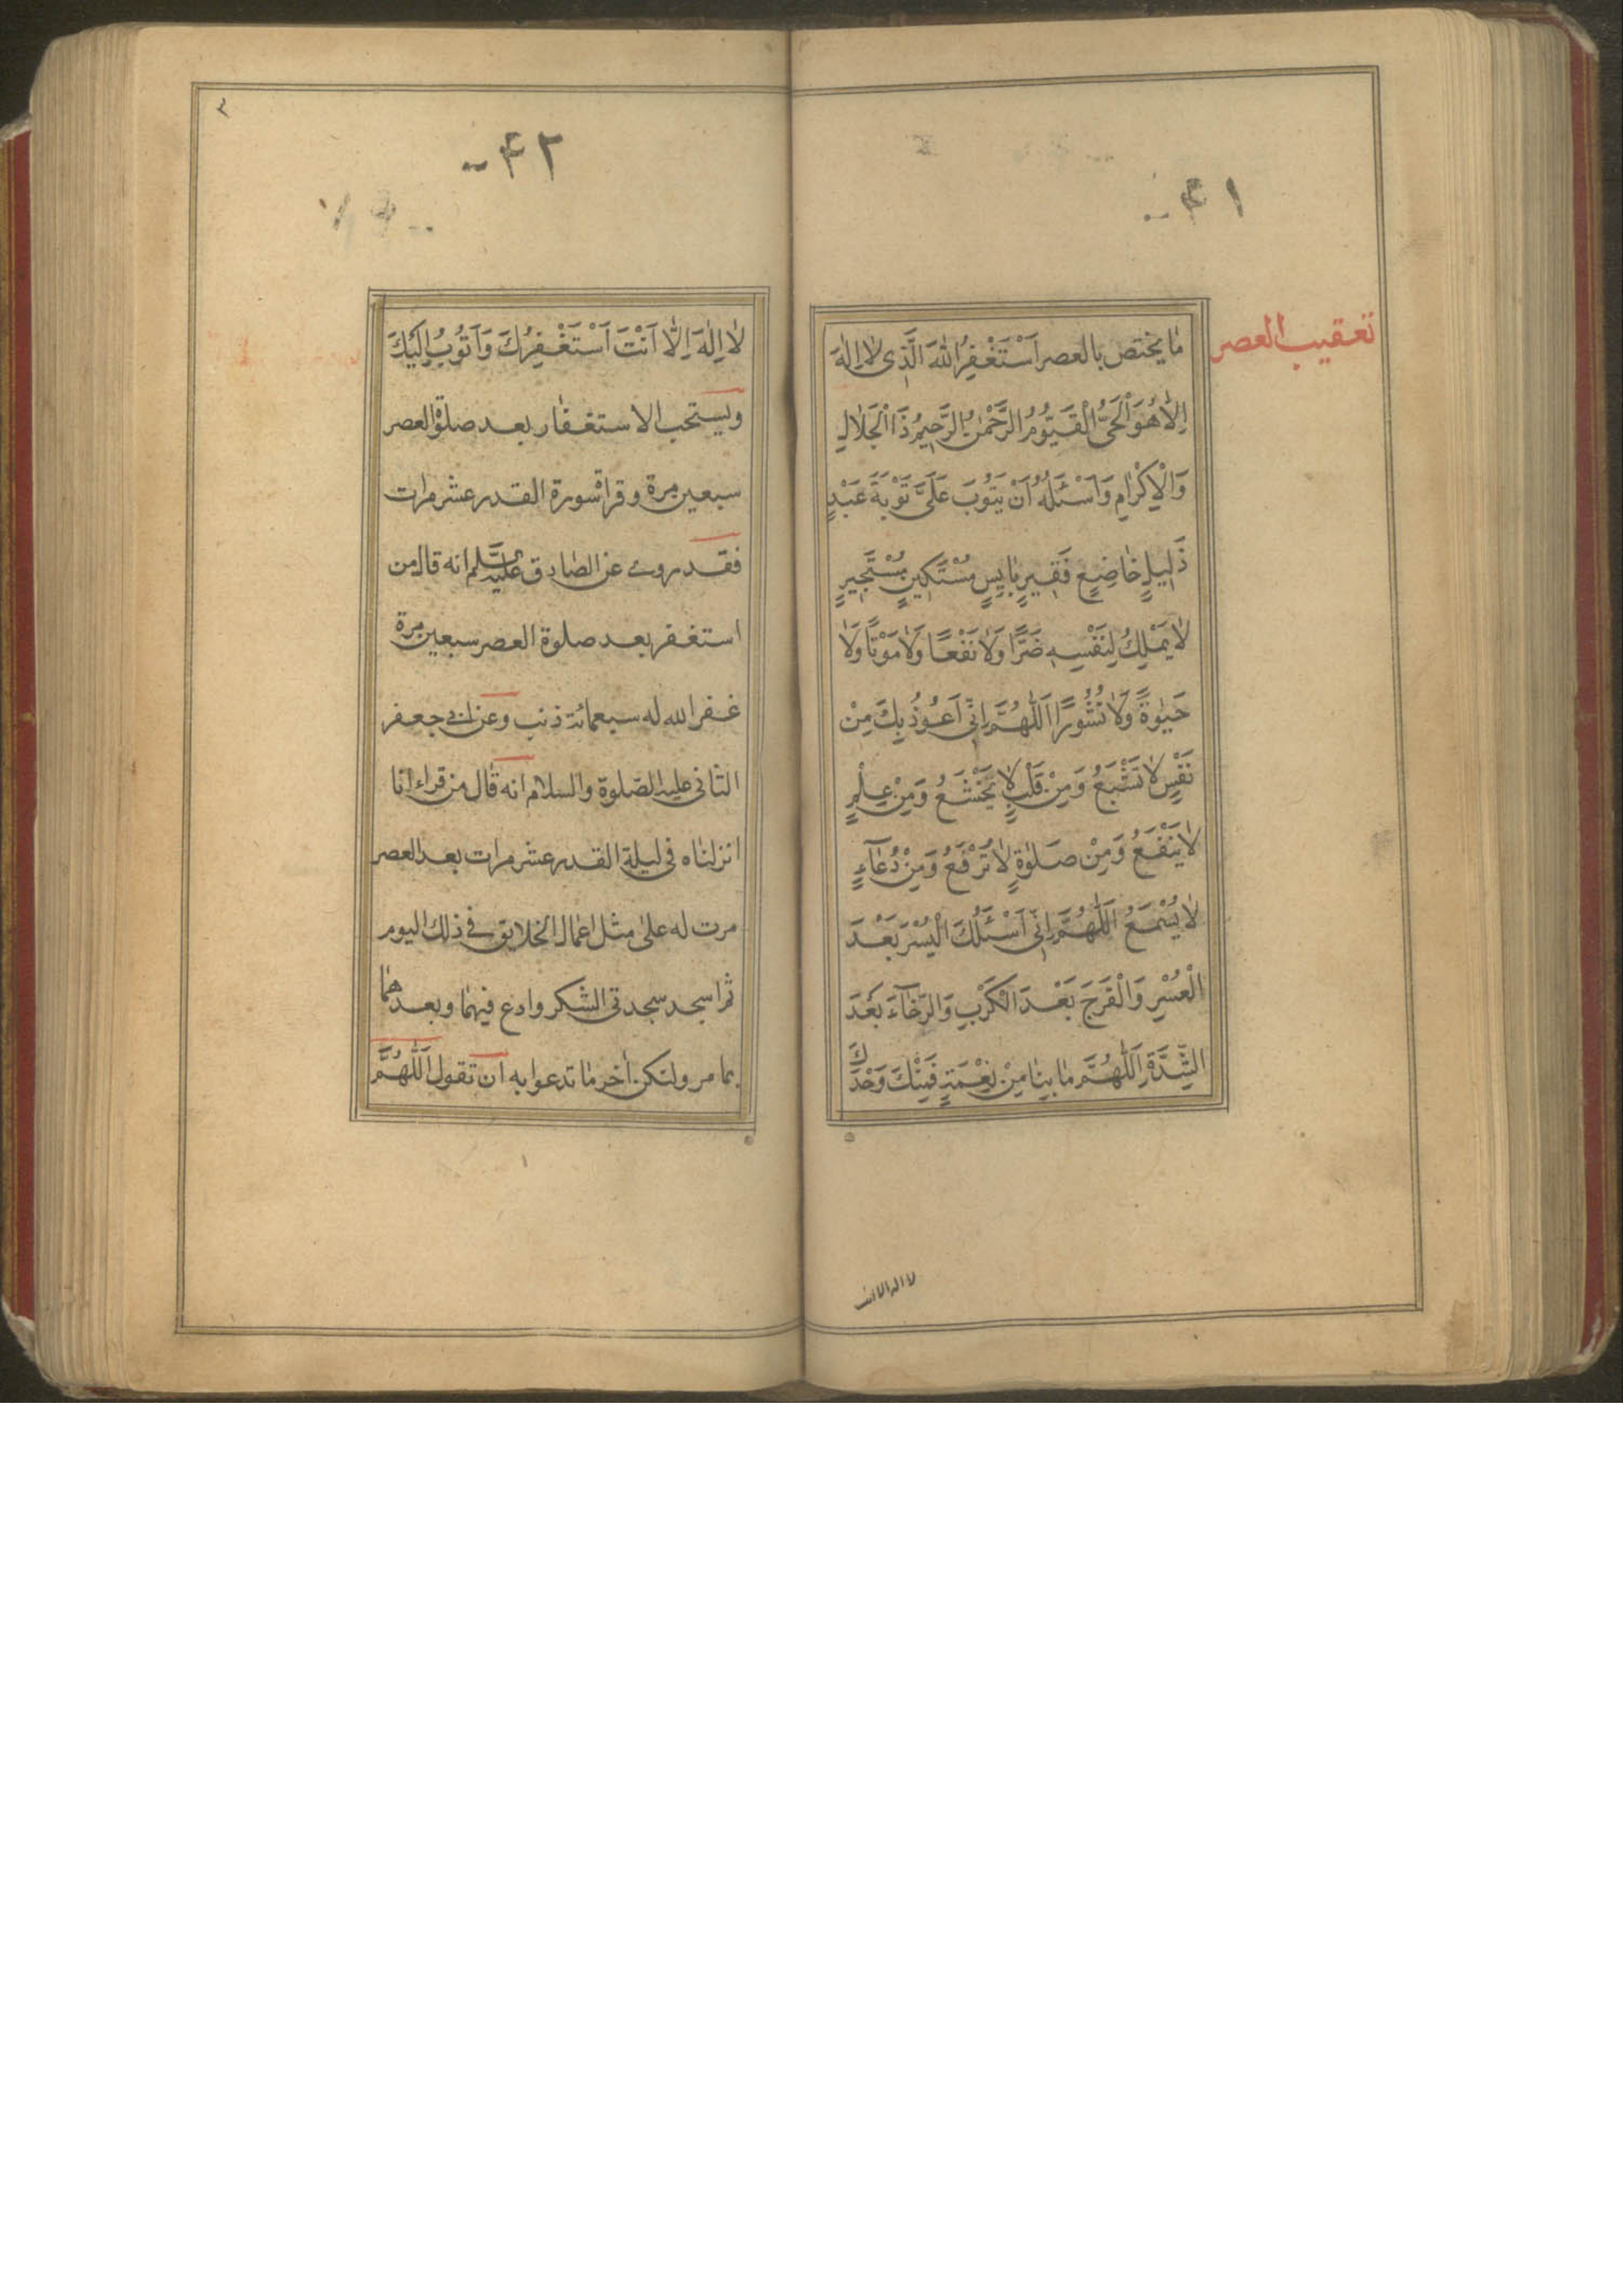 ۴۱
تعقیب العصر
مٰا یختص بالعصر اَسْتَغْفِرُ اللّٰهَ الَّذی لٰا اِلٰهَ
اِلّٰا هُوَ الْحَیُّ الْقَیُّومُ الرَّحْمٰنُ الرَّحیمُ ذَا الْجَلٰالِ
وَالْاِکْرٰامِ وَاَسْئَلُهُ اَنْ یَتُوبَ عَلَیَّ تَوْبَةَ عَبْدٍ
ذَلیلٍ خٰاضِعٍ فَقیرٍ بٰایِسٍ مُسْتَکینٍ مُسْتَجیرٍ
لٰا یَمْلِکُ لِنَفْسِهِ ضَرًّا وَلٰا نَفْعًا وَلٰا مَوْتًا وَلٰا
حَیٰوةً وَلٰا نُشُورًا اَللّٰهُمَّ اِنّی اَعُوذُ بِکَ مِنْ
نَفْسٍ لٰا تَشْبَعُ وَمِنْ قَلْبٍ لٰا یَخْشَعُ وَمِنْ عِلْمٍ
لٰا یَنْفَعُ وَمِنْ صَلٰوةٍ لٰا تُرْفَعُ وَمِنْ دُعٰآءٍ
لٰا یُسْمَعُ اَللّٰهُمَّ اِنّی اَسْئَلُکَ الْیُسْرَ بَعْدَ
الْعُسْرِ وَالْفَرَجَ بَعْدَ الْکَرْبِ وَالرَّخٰآءَ بَعْدَ
الشِّدَّةِ اَللّٰهُمَّ مٰا بِنٰا مِنْ نِعْمَةٍ فَمِنْکَ وَحْدَکَ
لا اله الا انت
۴۲
لٰا اِلٰهَ اِلّٰا اَنْتَ اَسْتَغْفِرُکَ وَاَتُوبُ اِلَیْکَ
ویستحب الاستغفار بعد صلوة العصر
سبعین مرة و قراة سورة القدر عشر مرات
فقد روی عن الصادق علیه السلم انه قال من
استغفر بعد صلوة العصر سبعین مرة
غفر الله له سبعمائة ذنب وعن ابی جعفر
الثانی علیه الصلوة والسلام انه قال من قراء انا
انزلناه فی لیلة القدر عشر مرات بعد العصر
مرت له علی مثل اعمال الخلایق فی ذلک الیوم
ثم اسجد سجدتی الشکر وادع فیهما وبعدهما
بما مر ولتکن آخر ما تدعوا به ان تقول اَللّٰهُمَّ